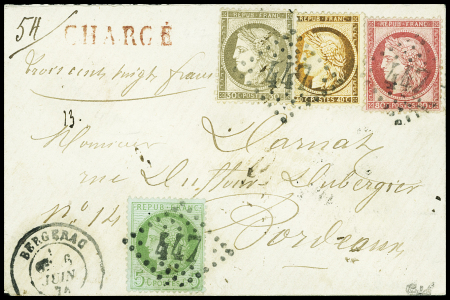 54
CHARGÉ
REPUB · FRANC ·
30 C · POSTES · 30 C
447
REPUB · FRANC ·
40 C · POSTES · 40 C
REPUB · FRANC ·
80 80
447
cent vingt francs
13
Monsieur Darnat
rue Dufour Dubergier
N° 14
Bordeaux
REPUB · FRANC ·
5 C 5 C
447
BERGERAC
6
JUIN
74